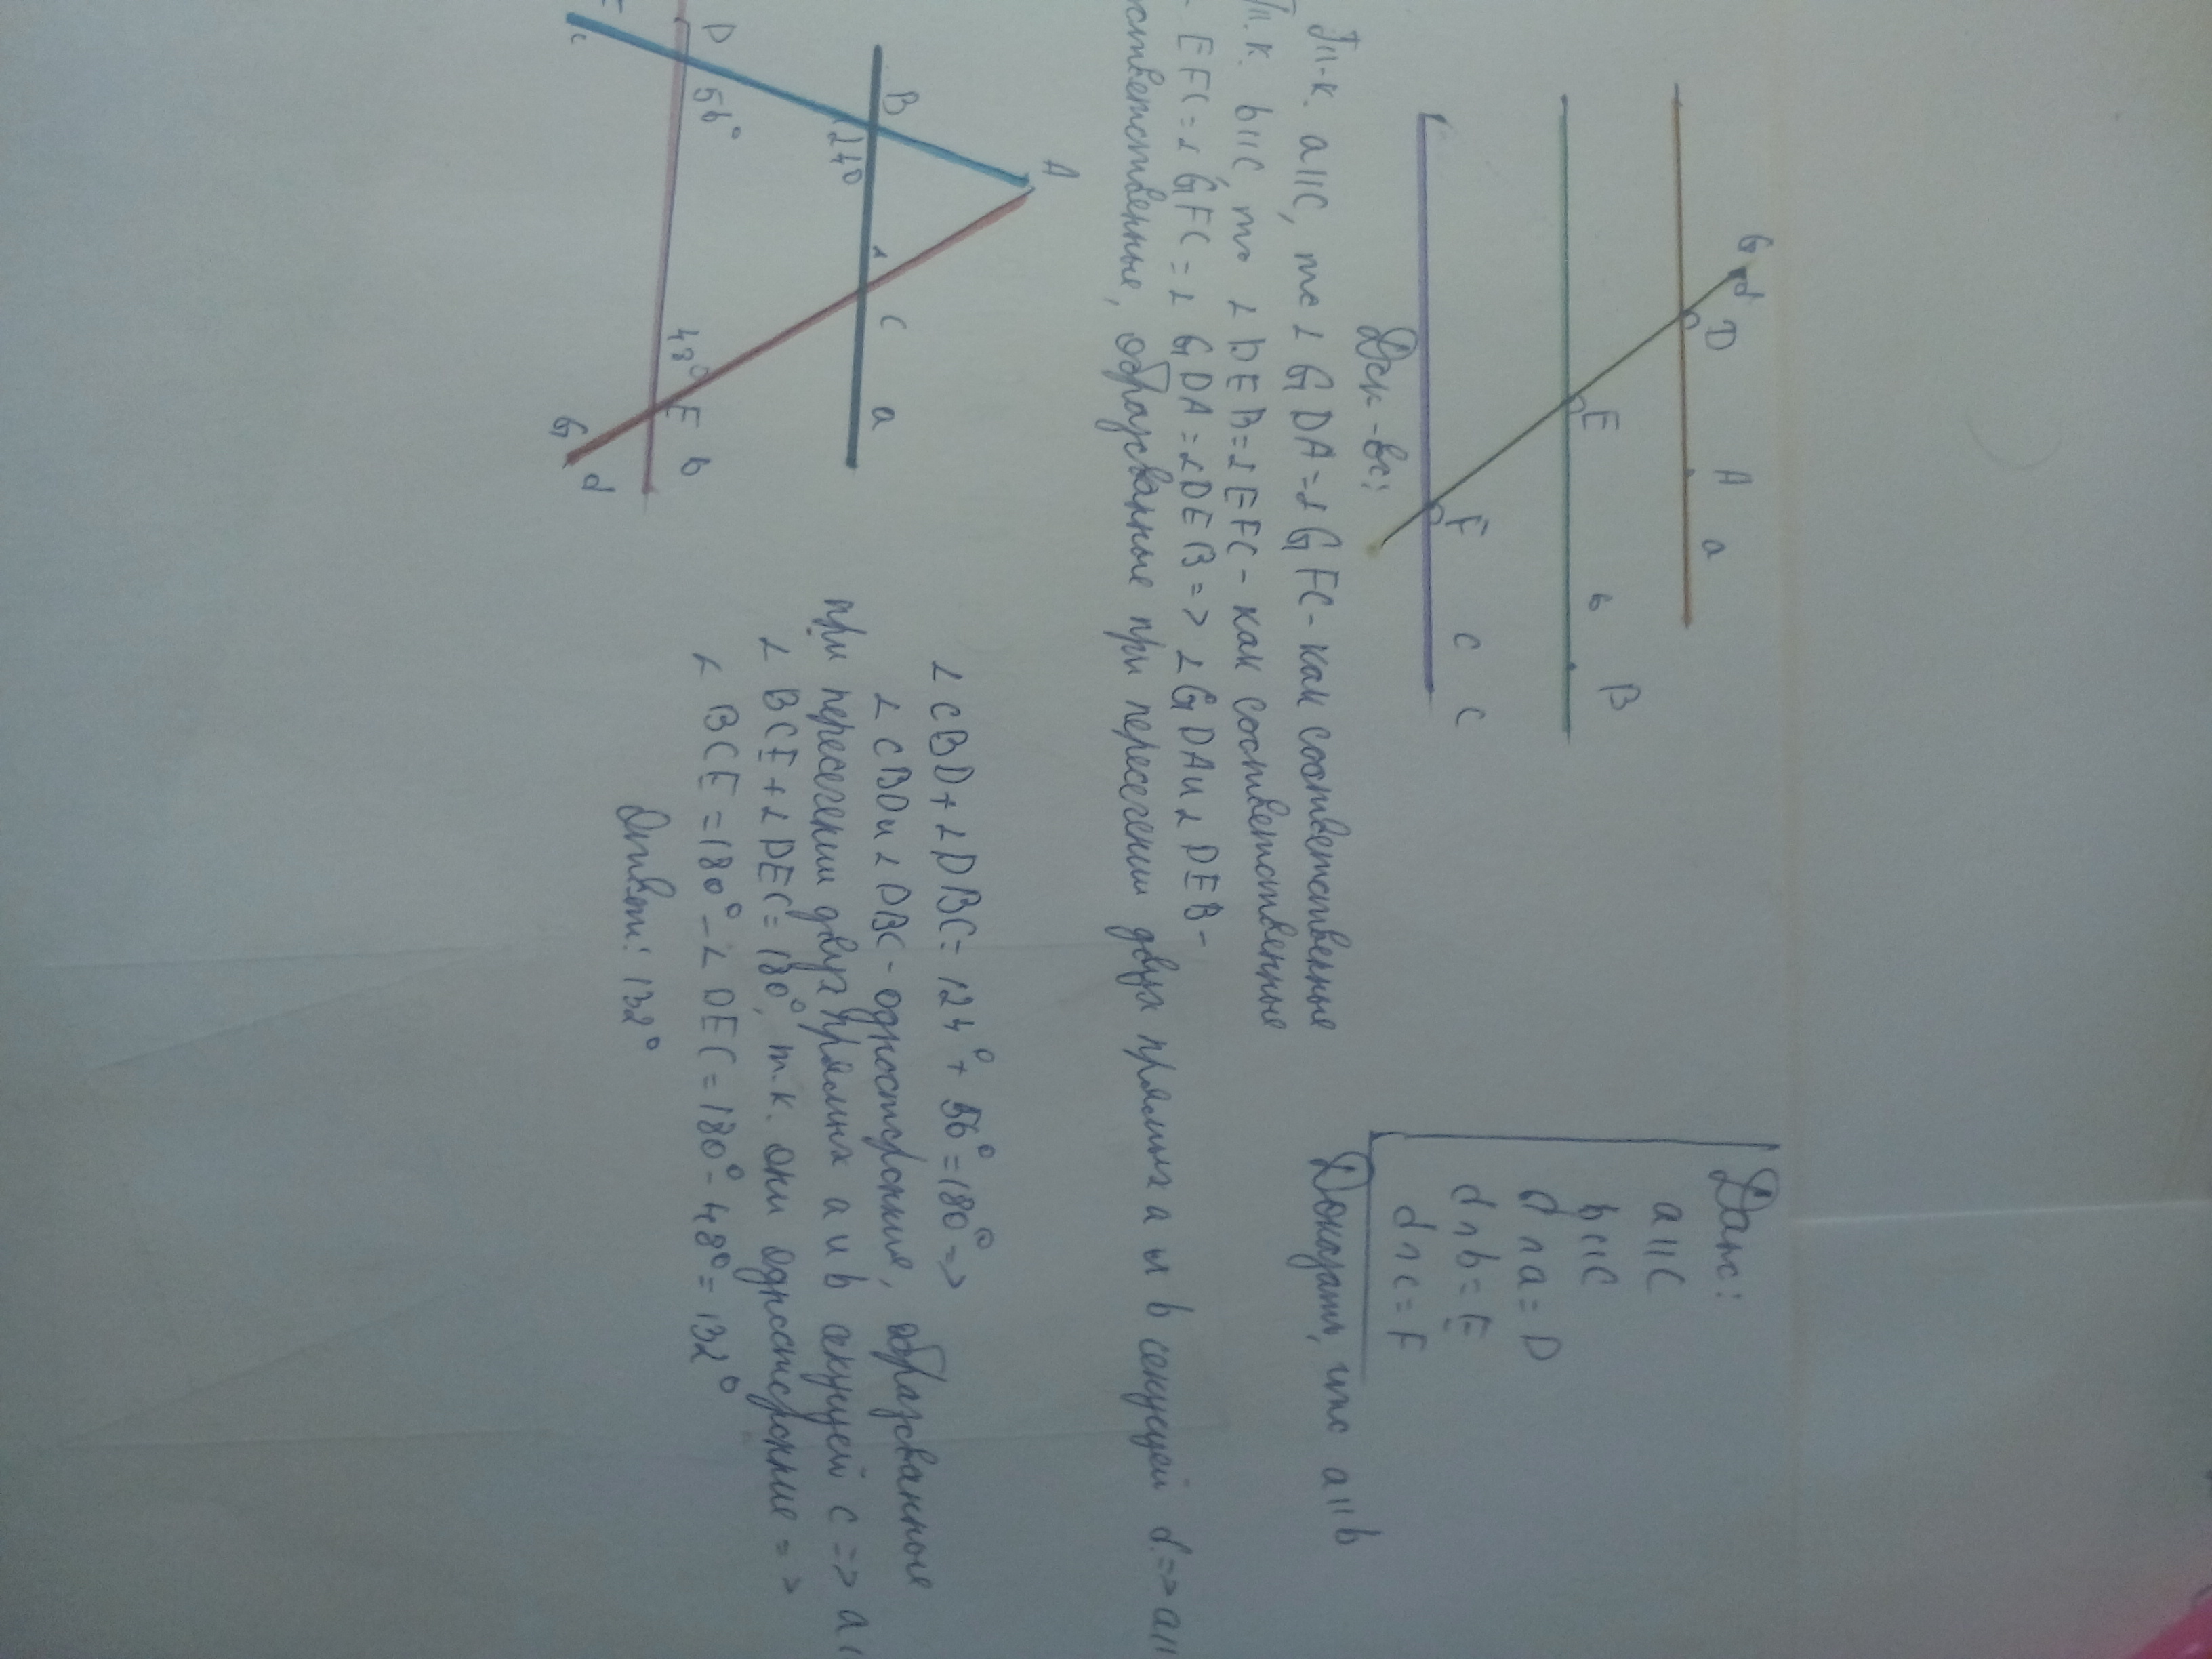 G
d
D
A
a
E
b
B
F
c
C
Дано:
a||c
b||c
d∩a=D
d∩b=E
d∩c=F
Доказать, что a||b
Док-во:
Т.к. a||c, то ∠GDA=∠GFC - как соответственные
Т.к. b||c, то ∠DEB=∠EFC - как соответственные
EFC=∠GFC=∠GDA=∠DEB=> ∠GDA и ∠DEB -
ответственные, образованные при пересечении двух прямых a и b секущей d => a||
A
B
1240
1
C
a
D
56°
48°
E
b
c
G
d
∠CBD+∠DBC=124°+56°=180°=>
∠CBD и ∠DBC - односторонние, образованные
при пересечении двух прямых a и b секущей c => a|
∠BCE+∠DEC=180°, т.к. они односторонние =>
∠BCE=180°-∠DEC=180°-48°=132°
Ответ: 132°